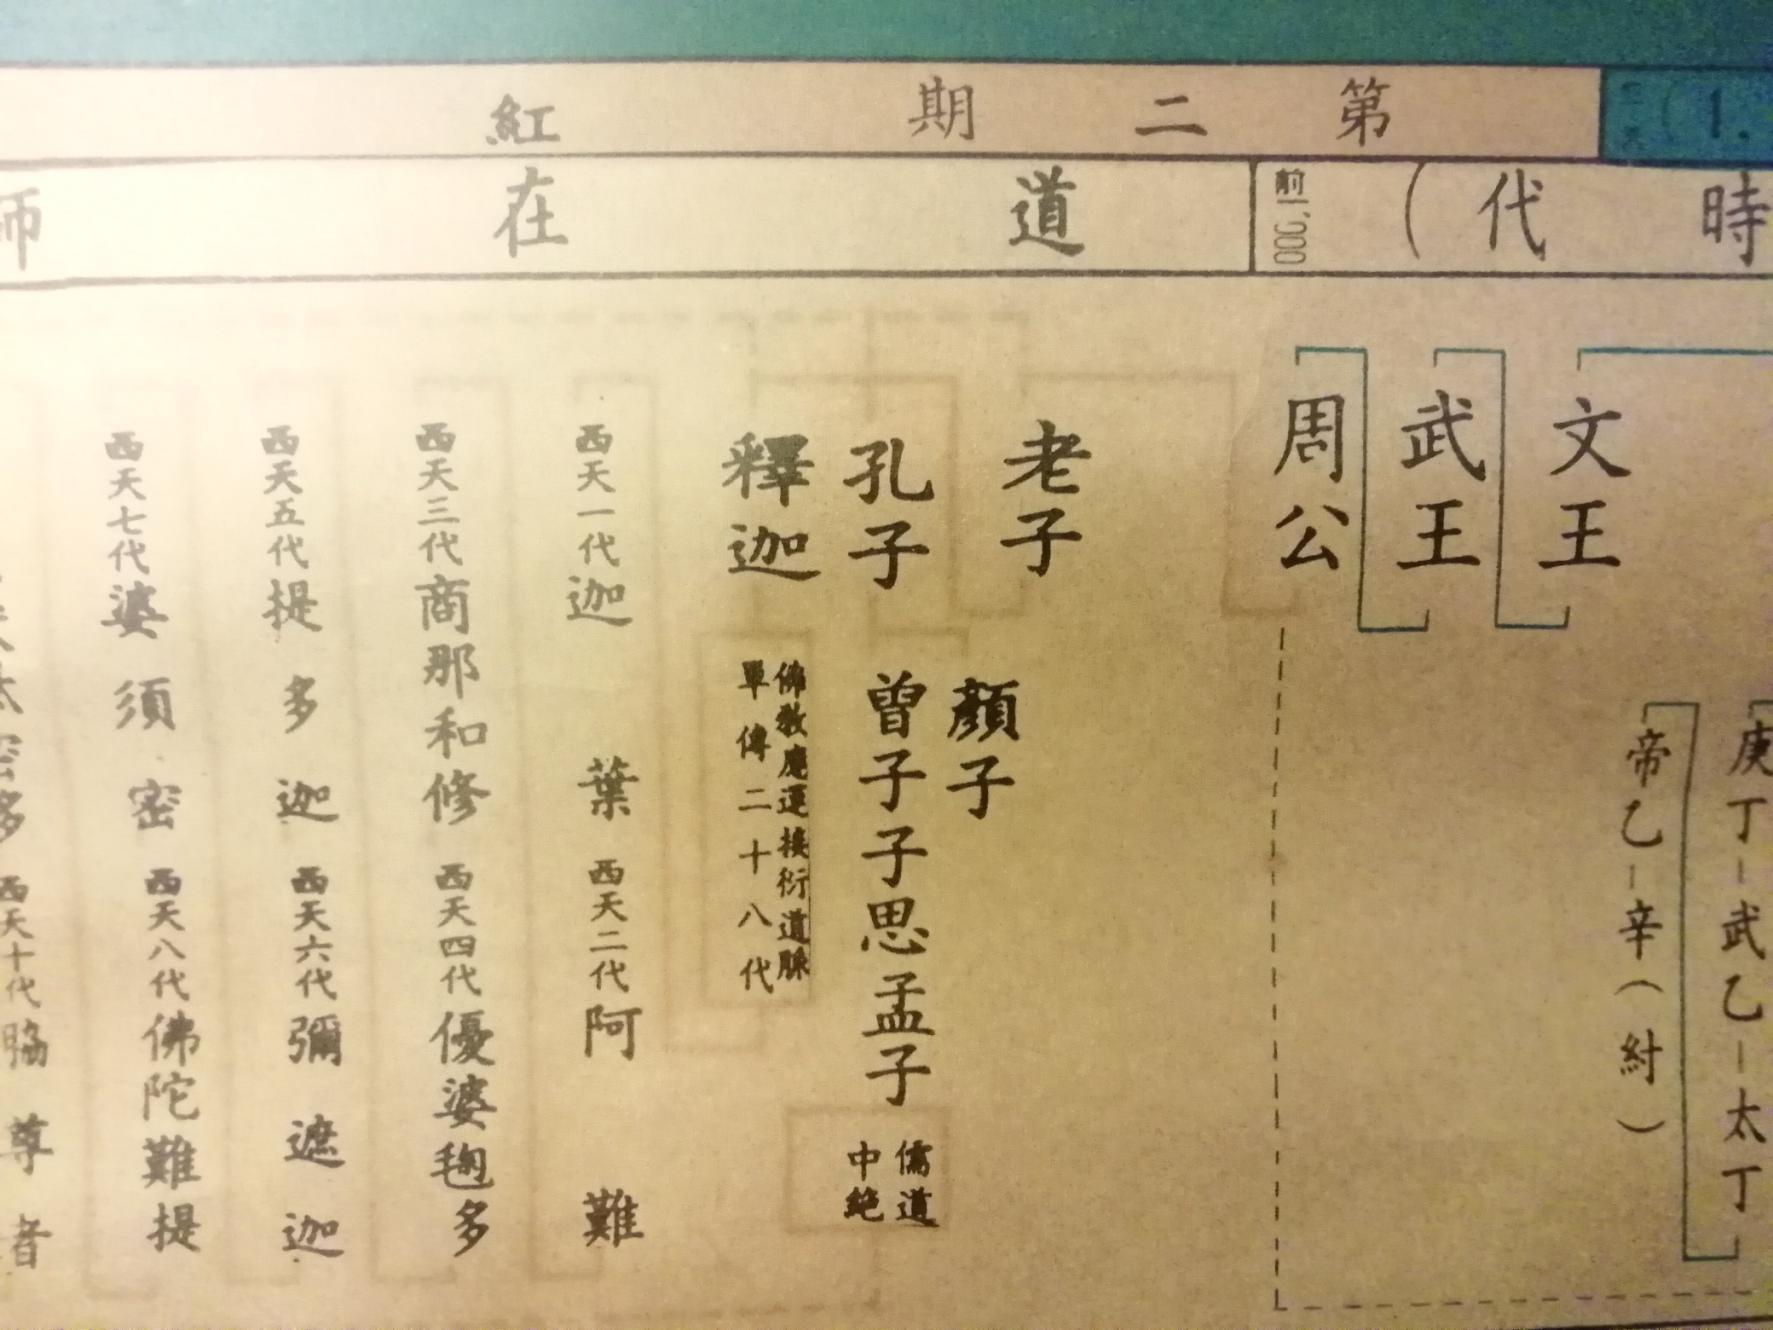 第二期紅
時代（
前一、300
道在師
文王
武王
周公
庚丁－武乙－太丁
帝乙－辛（紂）
老子
孔子
顏子
曾子子思孟子
儒道
中絕
釋迦
佛教應運接衍道脈
單傳二十八代
西天一代迦葉
西天二代阿難
西天三代商那和修
西天四代優婆毱多
西天五代提多迦
西天六代彌遮迦
西天七代婆須密
西天八代佛陀難提
西天十代脇尊者